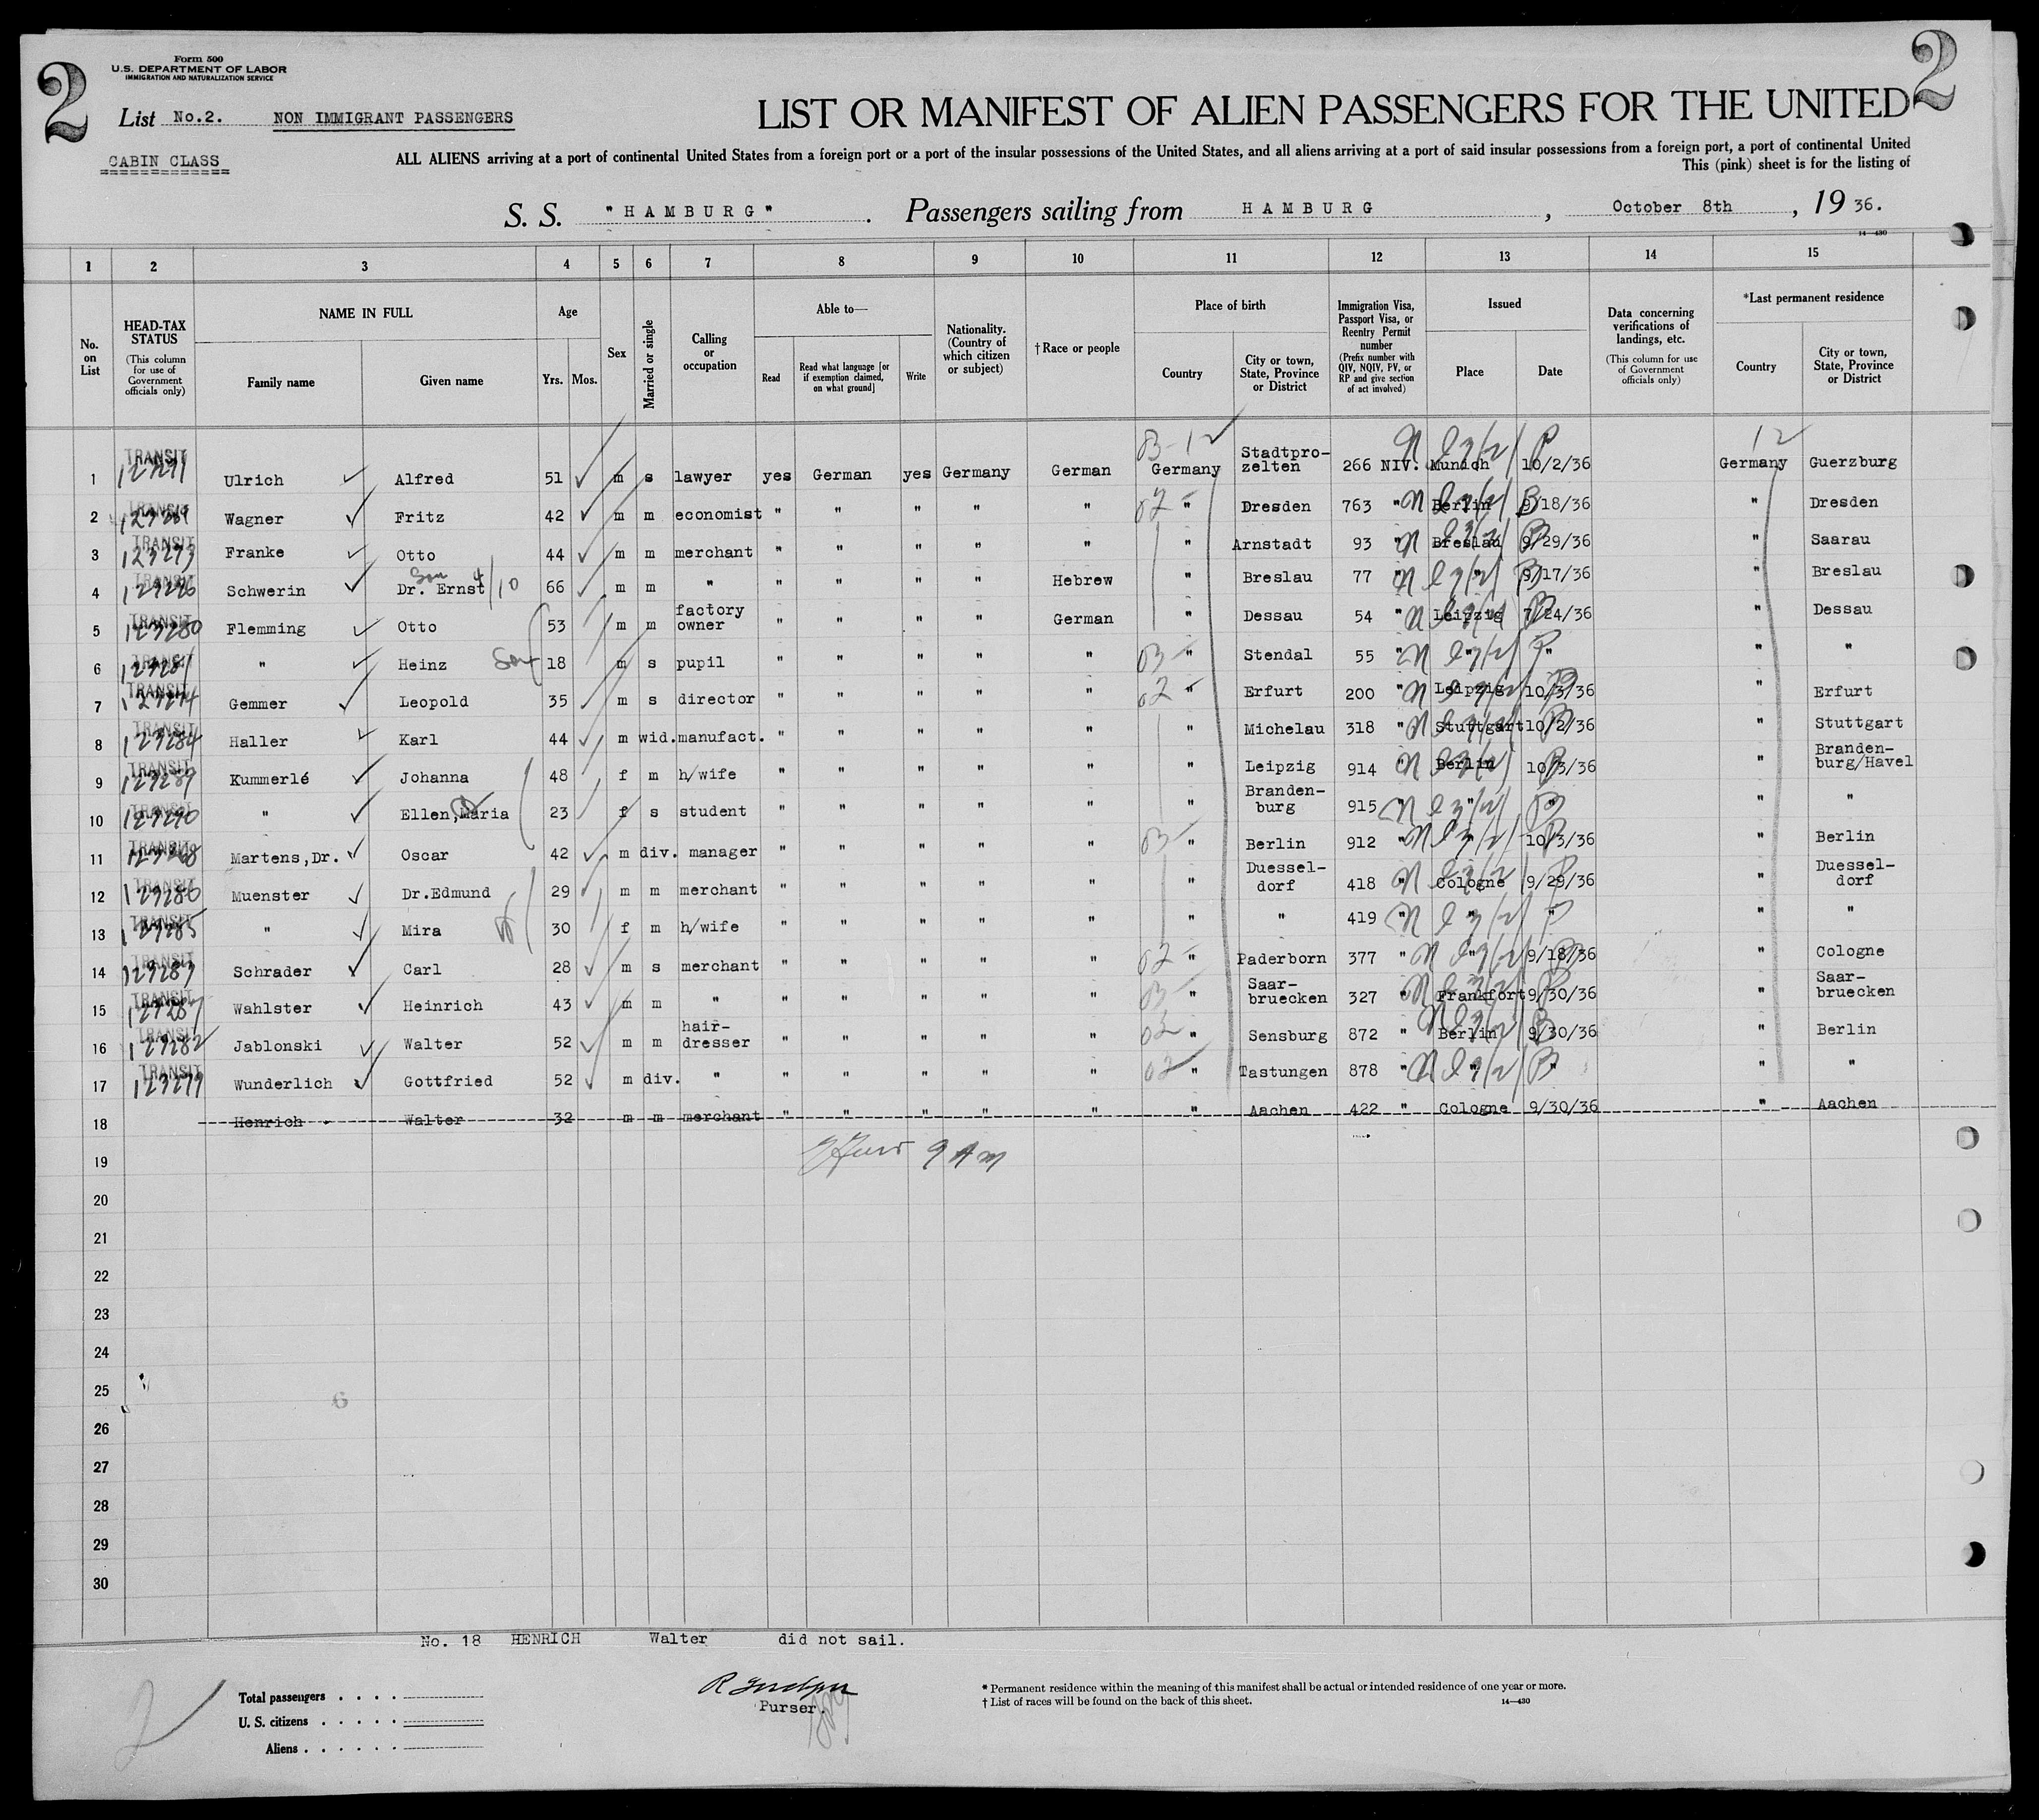 2
Form 500
U.S. DEPARTMENT OF LABOR
IMMIGRATION AND NATURALIZATION SERVICE
2
List No.2. NON IMMIGRANT PASSENGERS
LIST OR MANIFEST OF ALIEN PASSENGERS FOR THE UNITED
CABIN CLASS
ALL ALIENS arriving at a port of continental United States from a foreign port or a port of the insular possessions of the United States, and all aliens arriving at a port of said insular possessions from a foreign port, a port of continental United
This (pink) sheet is for the listing of
S. S. "HAMBURG". Passengers sailing from HAMBURG, October 8th, 1936.
14-430
1 2 3 4 5 6 7 8 9 10 11 12 13 14 15
No. on List
HEAD-TAX STATUS (This column for use of Government officials only)
NAME IN FULL Family name Given name
Age Yrs. Mos.
Sex
Married or single
Calling or occupation
Able to— Read Read what language [or if exemption claimed, on what ground] Write
Nationality. (Country of which citizen or subject)
†Race or people
Place of birth Country City or town, State, Province or District
Immigration Visa, Passport Visa, or Reentry Permit number (Prefix number with QIV, NQIV, PV, or RP and give section of act involved)
Issued Place Date
Data concerning verifications of landings, etc. (This column for use of Government officials only)
*Last permanent residence Country City or town, State, Province or District
03-12 12
1 TRANSIT Ulrich Alfred 51 m s lawyer yes German yes Germany German Germany Stadtpro-zelten 266 NIV. Munich 10/2/36 Germany Guerzburg
2 TRANSIT Wagner Fritz 42 m m economist " " " " " 02 " Dresden 763 " Berlin 9/18/36 " Dresden
3 TRANSIT 123273 Franke Otto 44 m m merchant " " " " " " Arnstadt 93 " Breslau 9/29/36 " Saarau
4 TRANSIT Schwerin Dr. Ernst 66 m m " " " " " Hebrew " Breslau 77 " " 9/17/36 " Breslau
5 TRANSIT 123280 Flemming Otto 53 m m factory owner " " " " German " Dessau 54 " Leipzig 7/24/36 " Dessau
6 TRANSIT " Heinz Son 18 m s pupil " " " " " 03 " Stendal 55 " " " " "
7 TRANSIT Gemmer Leopold 35 m s director " " " " " 02 " Erfurt 200 " Leipzig 10/3/36 " Erfurt
8 TRANSIT 123284 Haller Karl 44 m wid. manufact. " " " " " " Michelau 318 " Stuttgart 10/2/36 " Stuttgart
9 TRANSIT 123289 Kummerlé Johanna 48 f m h/wife " " " " " " Leipzig 914 " Berlin 10/3/36 " Branden-burg/Havel
10 TRANSIT 123290 " Ellen,Maria 23 f s student " " " " " " Branden-burg 915 " " " " "
11 TRANSIT Martens,Dr. Oscar 42 m div. manager " " " " " 03 " Berlin 912 " " 10/3/36 " Berlin
12 TRANSIT Muenster Dr.Edmund 29 m m merchant " " " " " " Duessel-dorf 418 " Cologne 9/29/36 " Duessel-dorf
13 TRANSIT 123285 " Mira 30 f m h/wife " " " " " " " 419 " " " " "
14 TRANSIT Schrader Carl 28 m s merchant " " " " " 02 " Paderborn 377 " " 9/18/36 " Cologne
15 TRANSIT Wahlster Heinrich 43 m m " " " " " " 03 " Saar-bruecken 327 " Frankfort 9/30/36 " Saar-bruecken
16 TRANSIT 123282 Jablonski Walter 52 m m hair-dresser " " " " " 02 " Sensburg 872 " Berlin 9/30/36 " Berlin
17 TRANSIT 123279 Wunderlich Gottfried 52 m div. " " " " " " 02 " Tastungen 878 " " " " "
18 Henrich Walter 32 m m merchant " " " " " " Aachen 422 " Cologne 9/30/36 " Aachen
9 AM
19
20
21
22
23
24
25
6
26
27
28
29
30
No. 18 HENRICH Walter did not sail.
2
Total passengers
U. S. citizens
Aliens
Purser.
* Permanent residence within the meaning of this manifest shall be actual or intended residence of one year or more.
† List of races will be found on the back of this sheet. 14-430